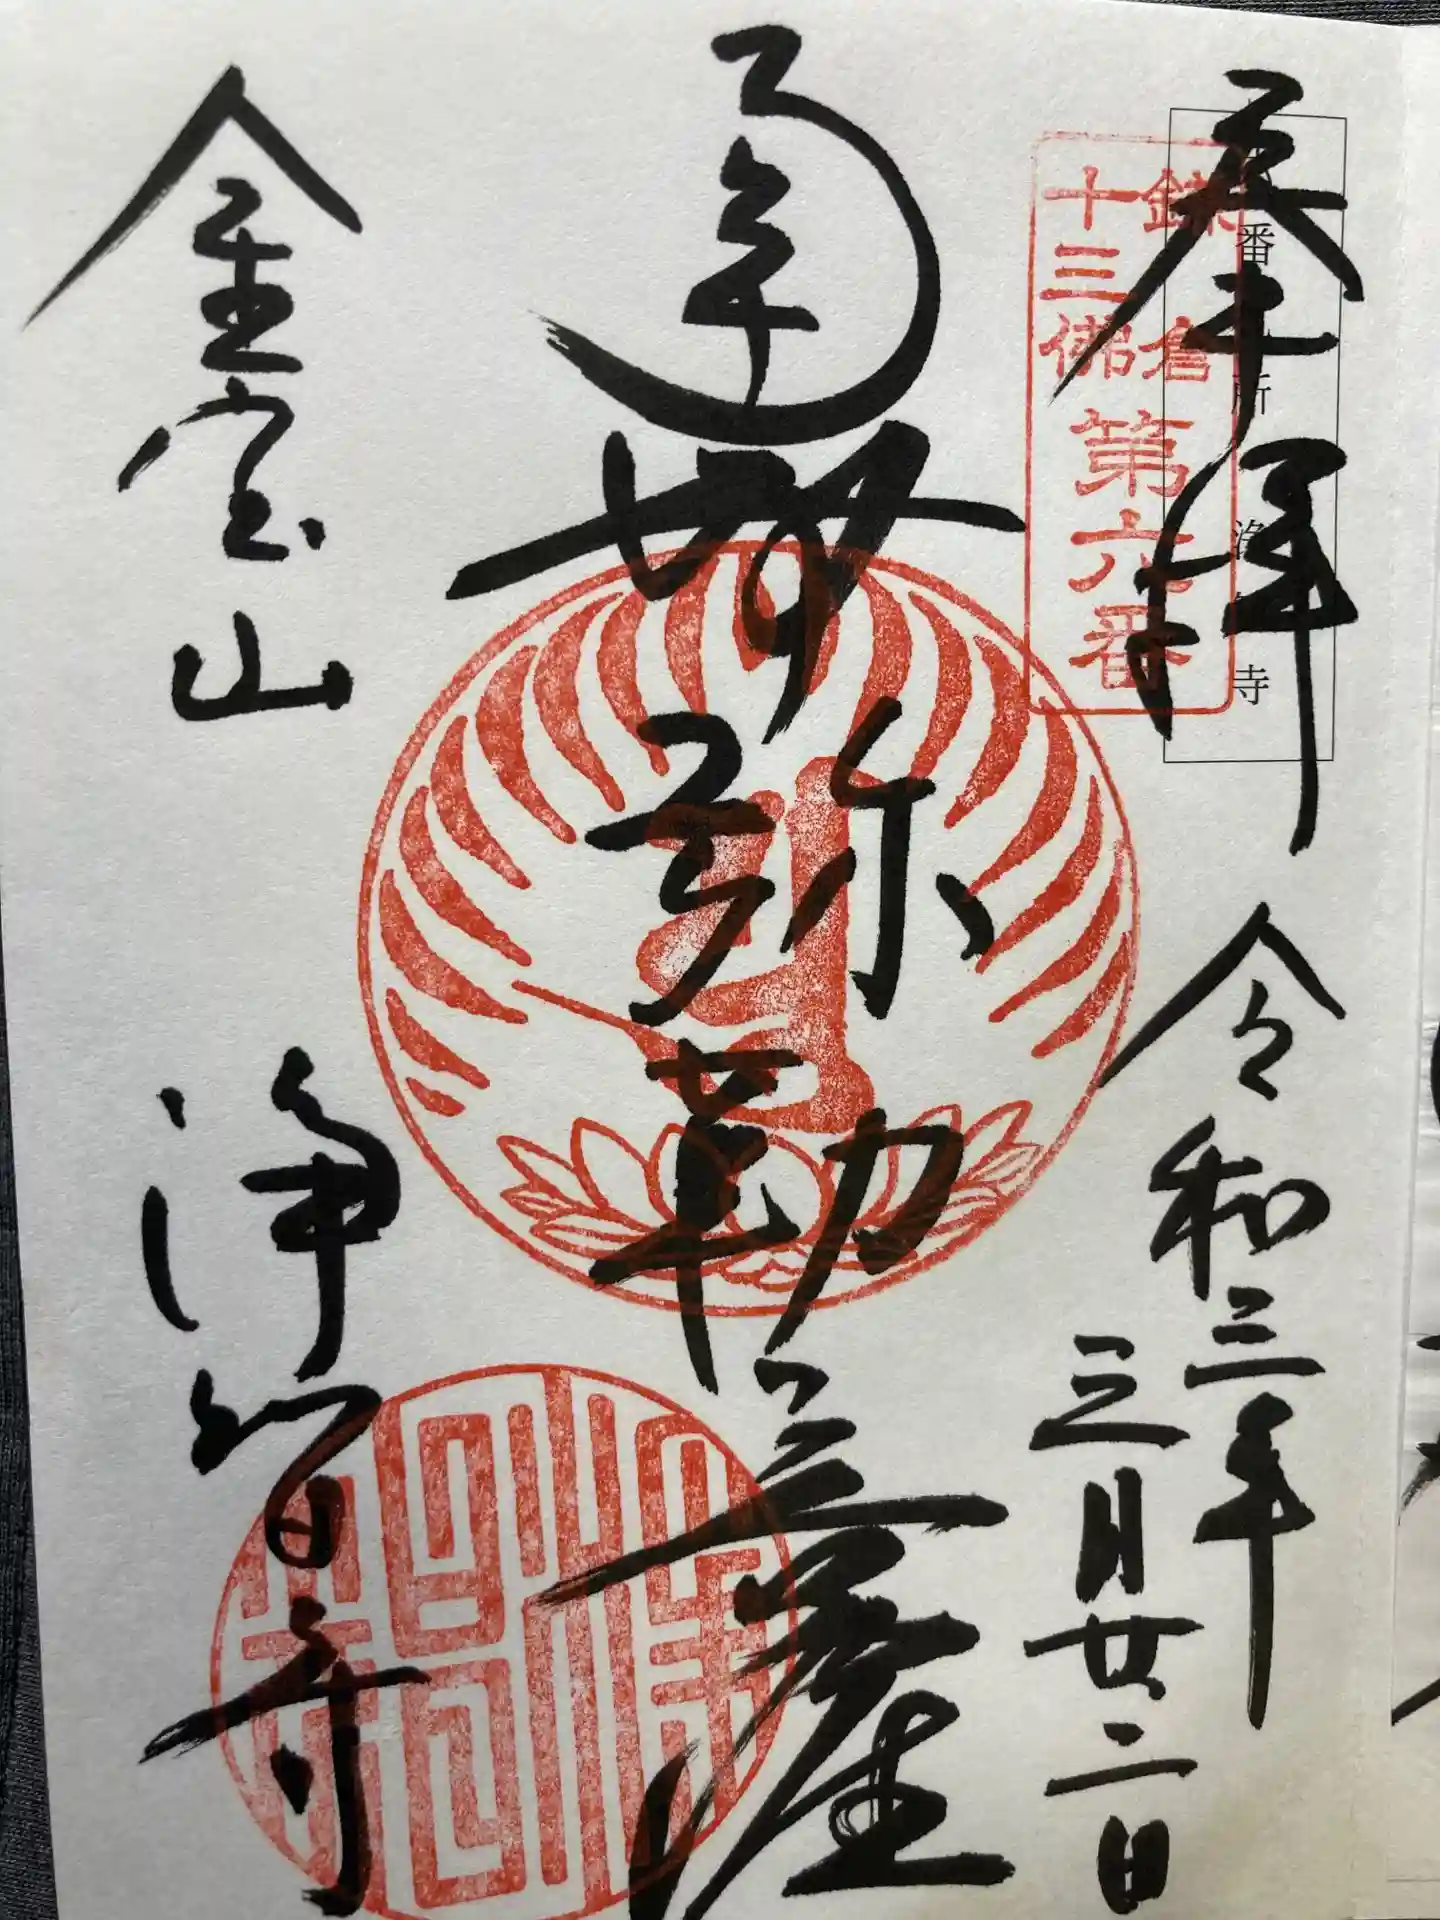 奉拝
令和三年
三月廿二日
鎌倉
十三佛
第六番
番 所 浄 寺
弥勒菩薩
金宝山
浄智寺